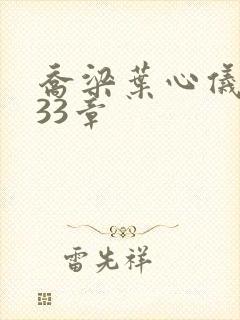 乔梁葉心儀
33章
雷先祥